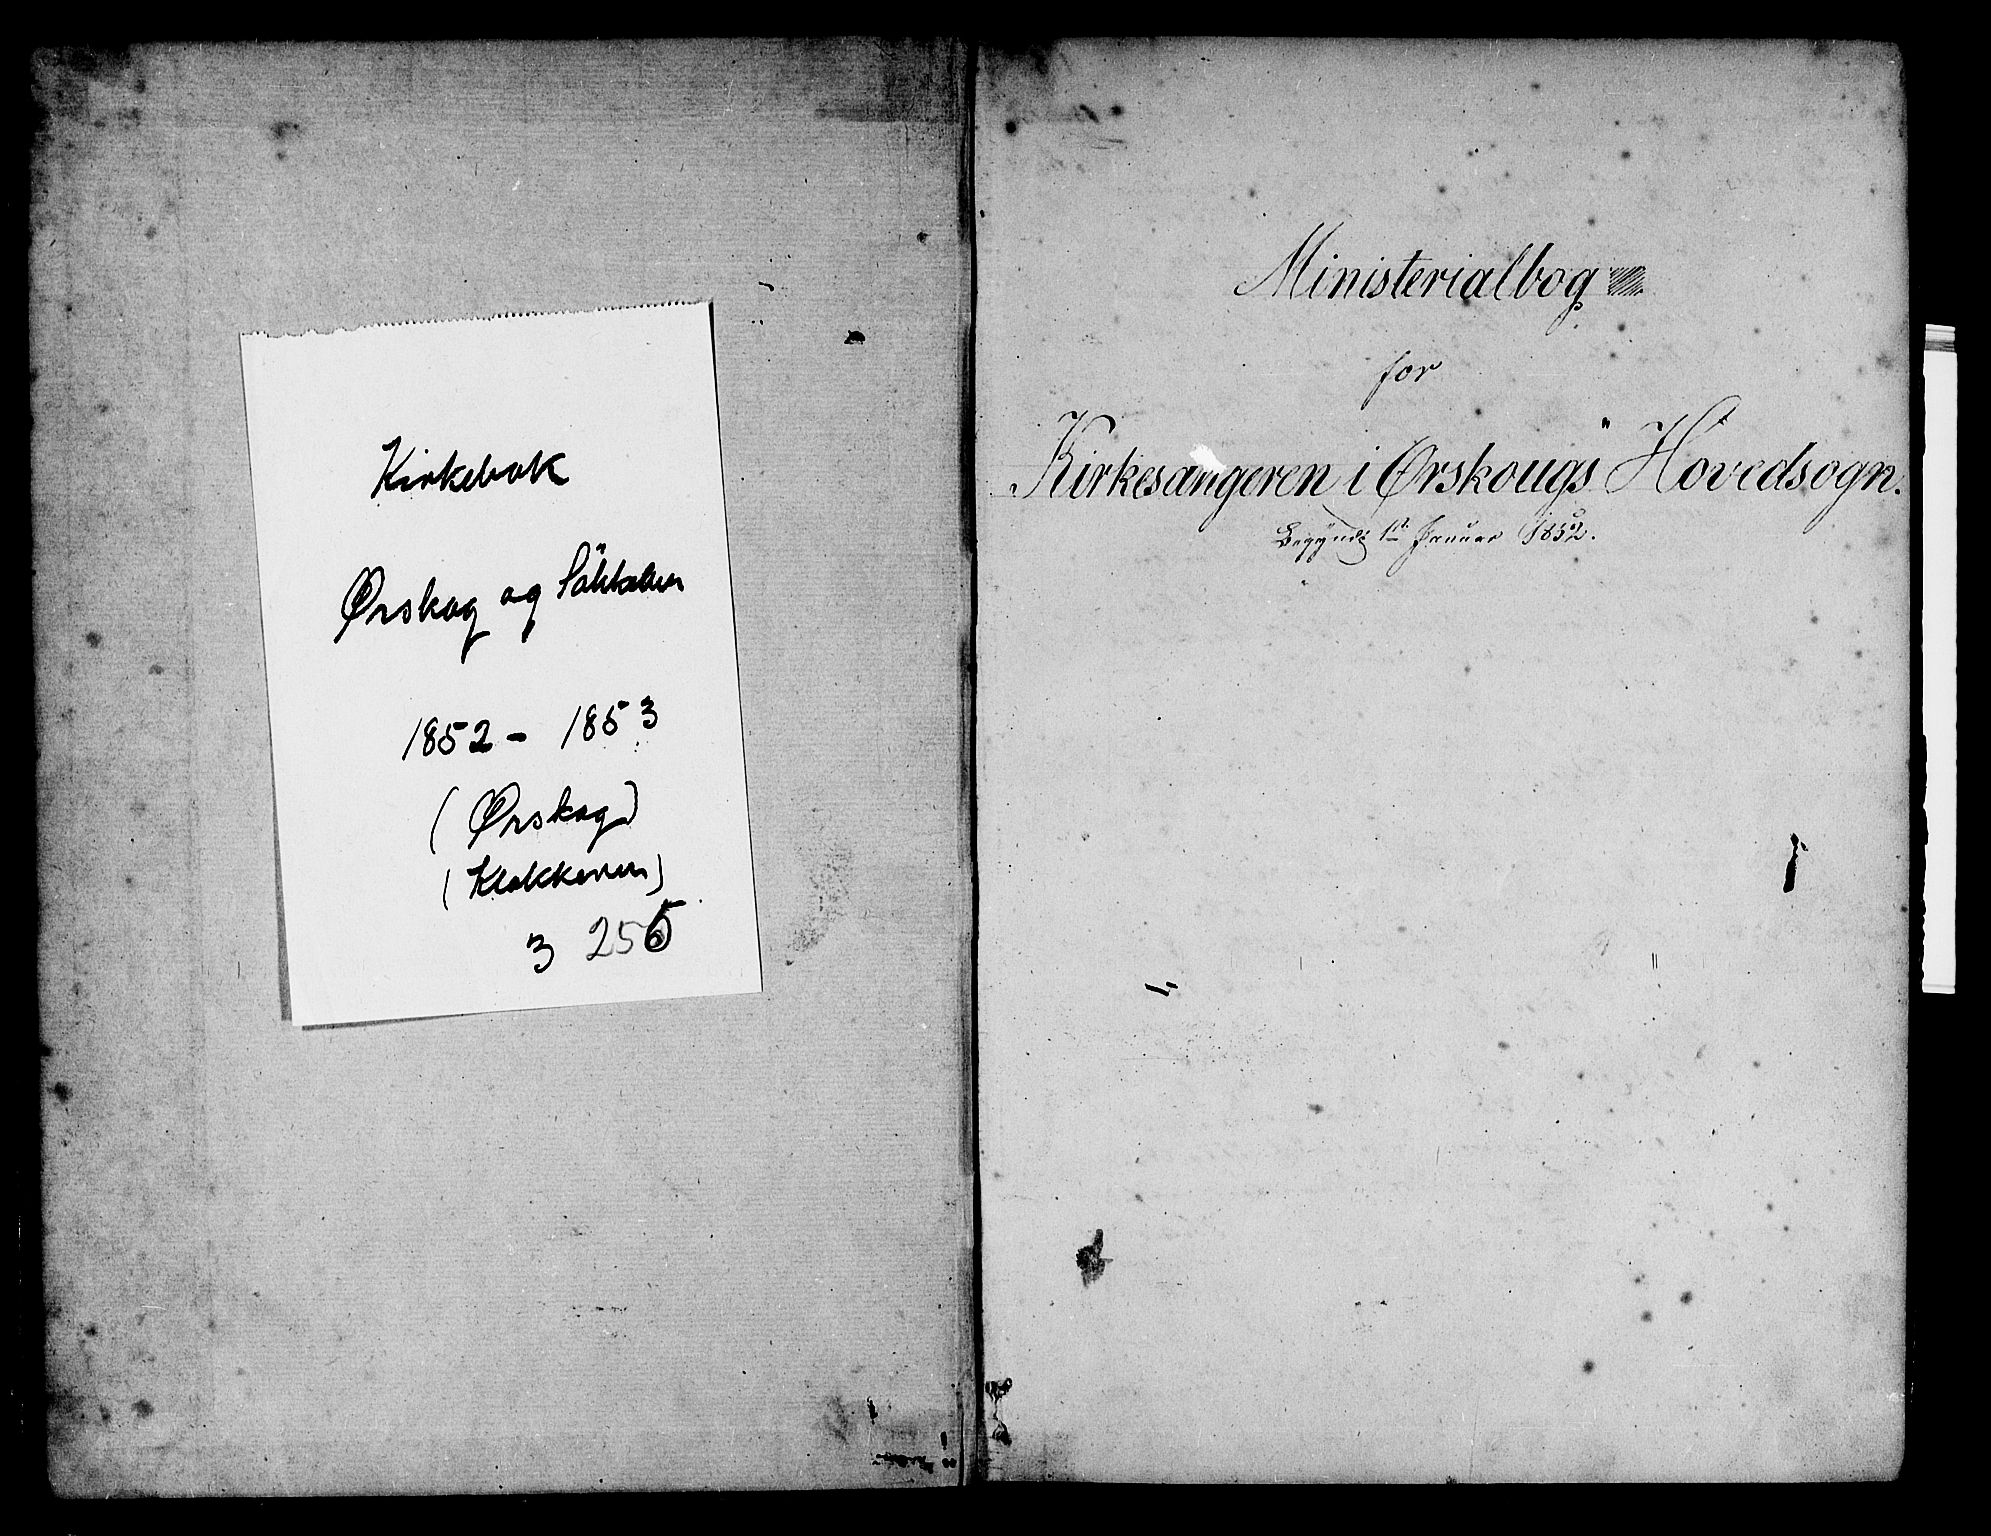 Kirkebok
Ørskog og Stikkelvn
1852 - 1853
(Ørskog)
(Klokkeren)
3 256
Ministerialbog
for
Kirkesangeren i Ørskougs Hovedsogn.
Begyndt 1st Januar 1852.